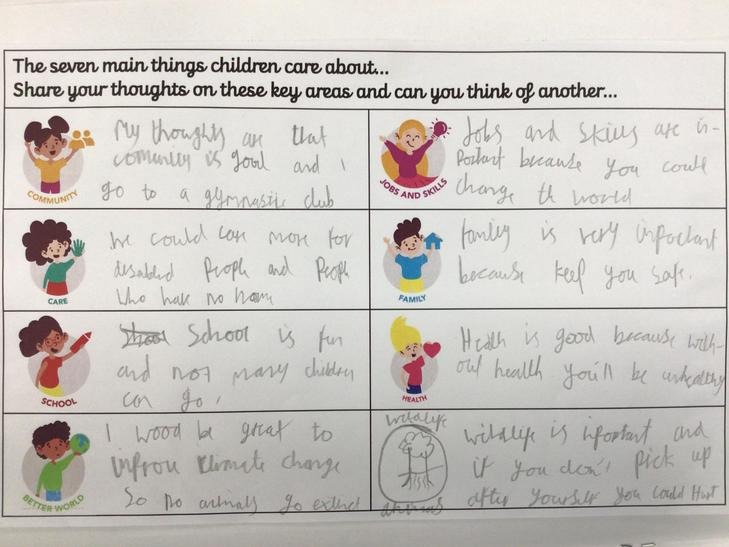 The seven main things children care about...
Share your thoughts on these key areas and can you think of another...
COMMUNITY
My thoughts are that
comunity is good and I
go to a gymnastic club
JOBS AND SKILLS
Jobs and skills are in-
portant because you could
change th world
CARE
We could care more for
disabled People and People
who have no home
FAMILY
family is very important
because keep you safe.
SCHOOL
School is fun
and not many children
can go.
HEALTH
Health is good because with-
out health you'll be unhealthy
BETTER WORLD
I wood be great to
climate change
So no animals go extinct
wildlife
animals
wildlife is inportant and
if you don't pick up
after yourself you could Hurt